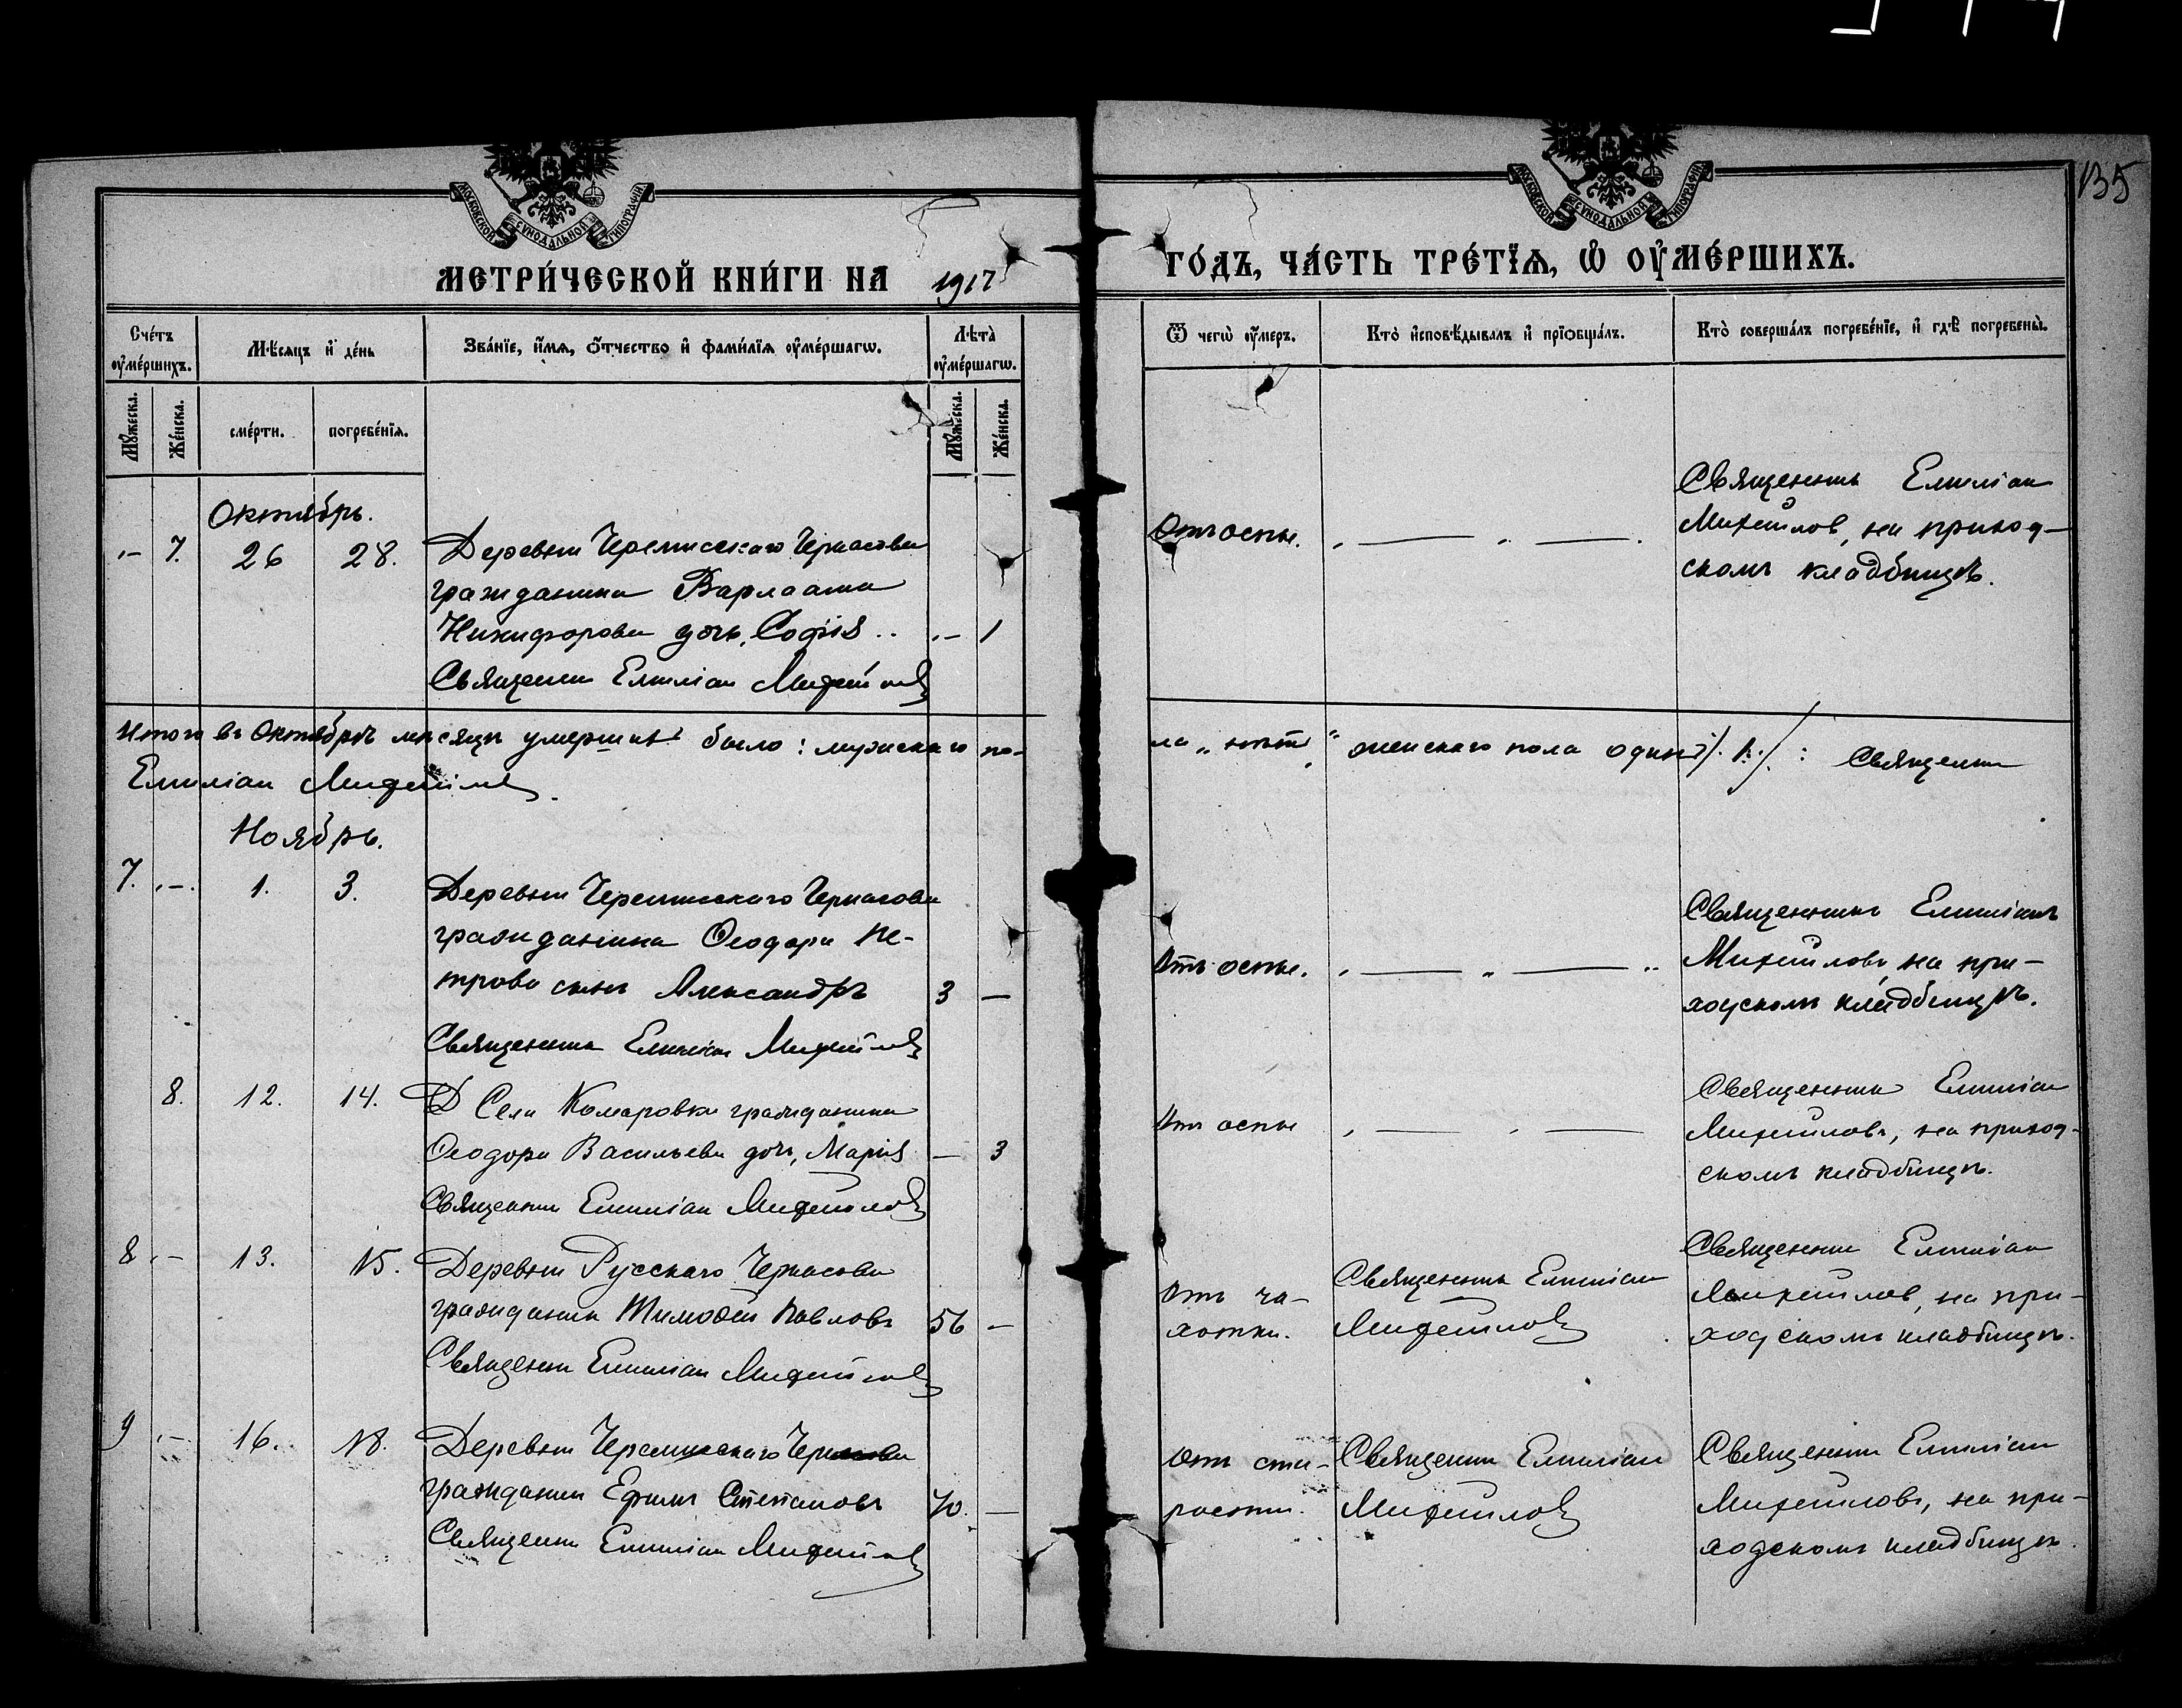 135
МОСКОВСКОЙ СѴНОДАЛЬНОЙ ТИПОГРАФІИ
МОСКОВСКОЙ СѴНОДАЛЬНОЙ ТИПОГРАФІИ
МЕТРИ́ЧЕСКОЙ КНИ́ГИ НА 1917 ГО́ДЪ, ЧА́СТЬ ТРЕ́ТЇѦ, Ѡ҆ ОУ҆МЕ́РШИХЪ.
Сче́тъ оу҆ме́ршихъ.
Мѣ́сѧцъ и҆ де́нь
Зва́нїе, и҆́мѧ, ѻ҆́тчество и҆ фами́лїѧ оу҆ме́ршагѡ.
Лѣ́та̀ оу҆ме́ршагѡ.
Ѿ чегѡ̀ оу҆́меръ.
Кто̀ и҆сповѣ́дывалъ и҆ прїѡбща́лъ.
Кто̀ соверша́лъ погребе́нїе, и҆ гдѣ̀ погребены̀.
Мꙋ́жеска.
Же́нска.
сме́рти.
погребе́нїѧ.
Мꙋ́жеска.
Же́нска.
Октябрь.
- 7. 26 28. Деревни Черемисскаго Черкасова
гражданина Варлаама
Никифорова дочь, Софія - 1
Священник Емилиан Михайлов
Отъ оспы.
Священникъ Емилиан
Михайлов, на приход-
скомъ кладбищѣ.
Итого въ Октябрѣ мѣсяцѣ умершихъ было: мужскаго по-
ла „нѣтъ" женскаго пола одинъ /1./: Священник
Емилиан Михайлов.
Ноябрь.
7. - 1. 3. Деревни Черемисскаго Черкасова
гражданина Ѳеодора Пе-
трова сынъ Александръ 3 —
Священник Емилиан Михайлов
Отъ оспы.
Священникъ Емилианъ
Михайловъ, на при-
ходскомъ кладбищѣ.
8. 12. 14. Села Комаровки гражданина
Ѳеодора Васильева дочь, Марія — 3
Священник Емилиан Михайлов
Отъ оспы
Священник Емилиан
Михайловъ, на приход-
скомъ кладбищѣ.
8 - 13. 15. Деревни Русскаго Черкасова
гражданин Тимоѳей Павловъ 56 —
Священник Емилиан Михайлов
Отъ ча-
хотки.
Священник Емилиан
Михайлов
Священник Емилиан
Михайлов, на при-
ходскомъ кладбищѣ.
9 - 16. 18. Деревни Черемисскаго Черкасова
гражданин Ефимъ Степановъ 70. —
Священник Емилиан Михайлов
Отъ ста-
рости.
Священник Емилиан
Михайлов
Священник Емилиан
Михайловъ, на при-
ходскомъ кладбищѣ.